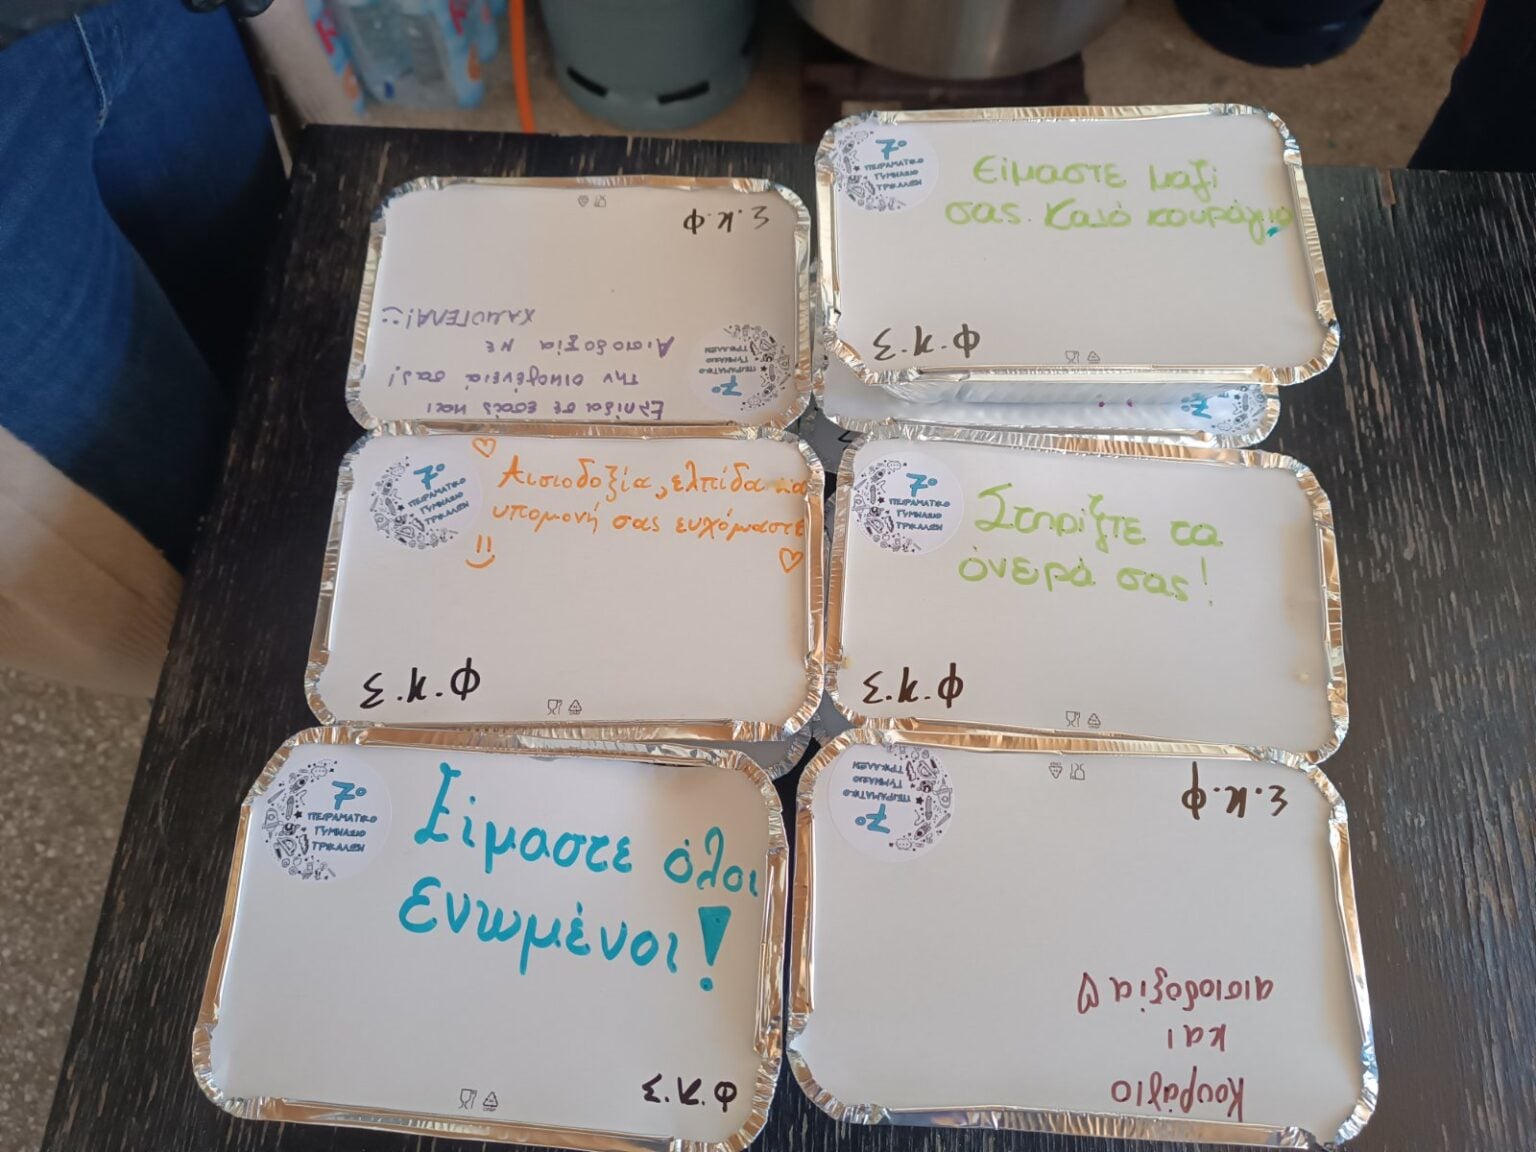 Ελπίδα σε εσάς και
την οικογένειά σας!
Αισιοδοξία με
ΧΑΜΟΓΕΛΑ!
7ο
ΠΕΙΡΑΜΑΤΙΚΟ
ΓΥΜΝΑΣΙΟ
ΤΡΙΚΑΛΩΝ
Φ.Κ.Σ.
7ο
ΠΕΙΡΑΜΑΤΙΚΟ
ΓΥΜΝΑΣΙΟ
ΤΡΙΚΑΛΩΝ
Είμαστε μαζί
σας. Καλό κουράγιο
Φ.Κ.Σ.
7ο
7ο
ΠΕΙΡΑΜΑΤΙΚΟ
ΓΥΜΝΑΣΙΟ
ΤΡΙΚΑΛΩΝ
Αισιοδοξία, ελπίδα και
υπομονή σας ευχόμαστε
Φ.Κ.Σ.
7ο
ΠΕΙΡΑΜΑΤΙΚΟ
ΓΥΜΝΑΣΙΟ
ΤΡΙΚΑΛΩΝ
Στηρίξτε τα
όνειρά σας!
Φ.Κ.Σ.
7ο
ΠΕΙΡΑΜΑΤΙΚΟ
ΓΥΜΝΑΣΙΟ
ΤΡΙΚΑΛΩΝ
Είμαστε όλοι
ενωμένοι!
Φ.Κ.Σ.
7ο
ΠΕΙΡΑΜΑΤΙΚΟ
ΓΥΜΝΑΣΙΟ
ΤΡΙΚΑΛΩΝ
Κουράγιο
και
αισιοδοξία
Φ.Κ.Σ.